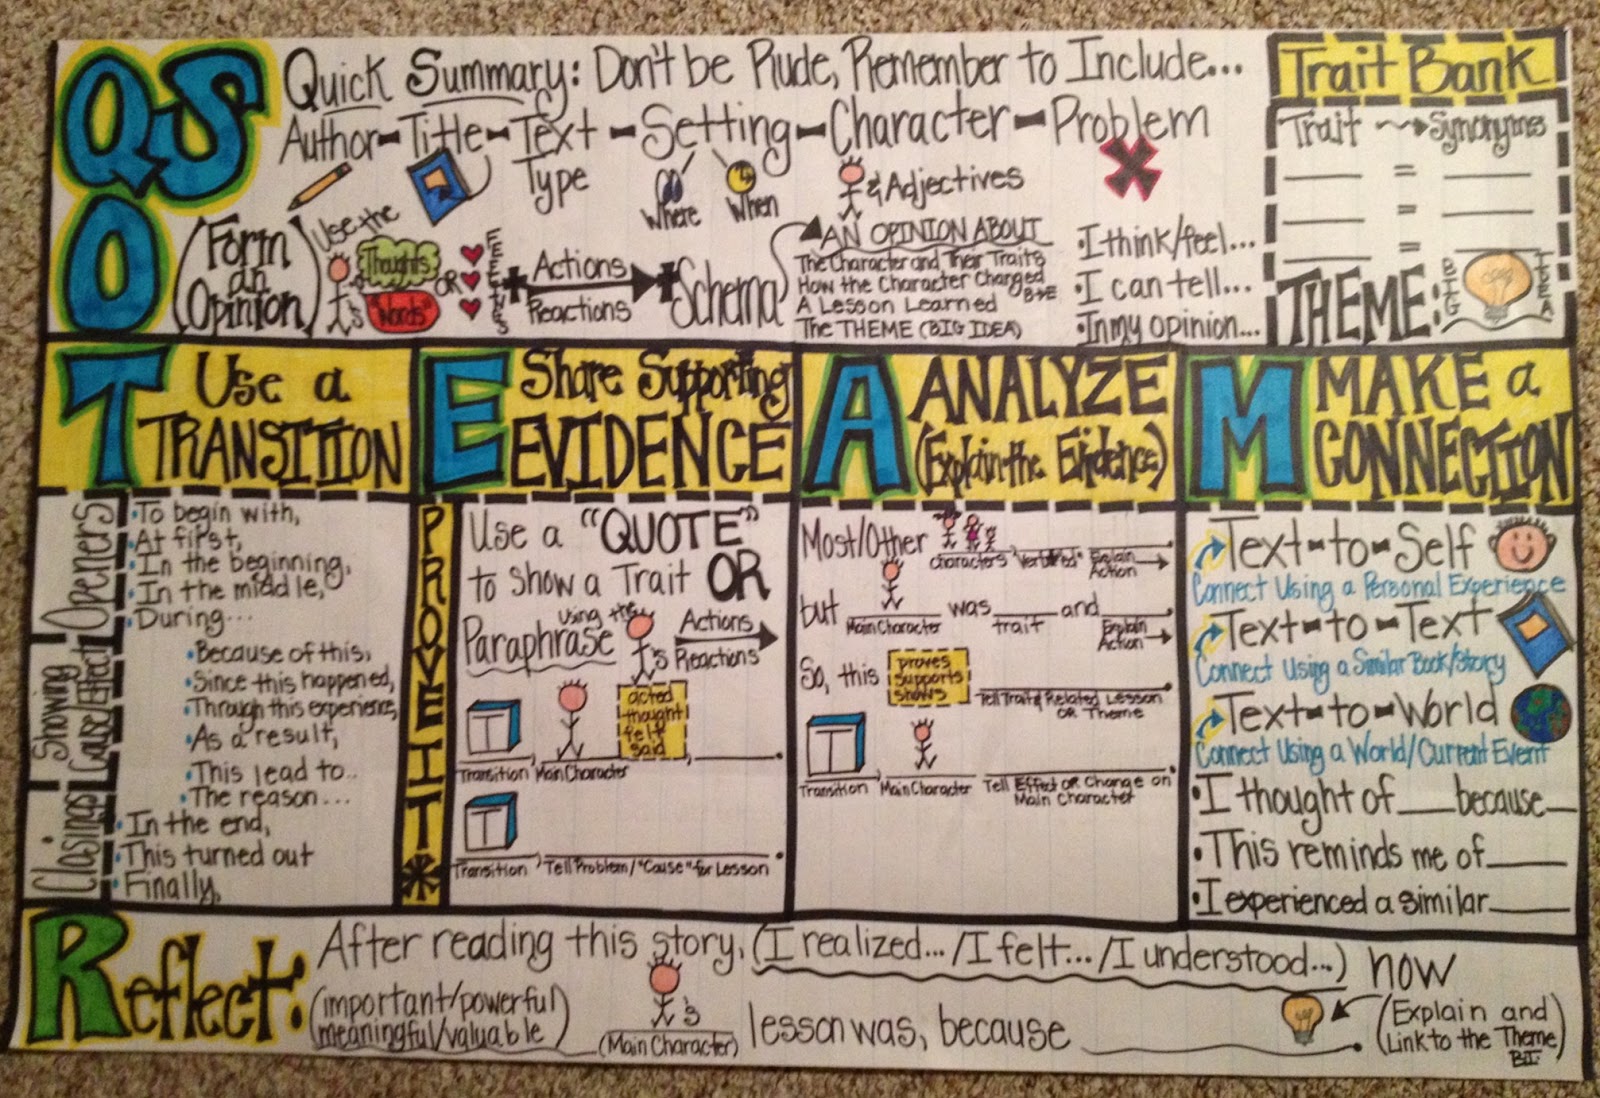 QS
Quick Summary: Don't be Rude, Remember to Include...
Author-Title-Text-Setting-Character-Problem
Type
Where
When
& Adjectives
Trait Bank
Trait
Synonyms
=
=
=
THEME:
BIG
IDEA
O
(Form an Opinion)
Use the
's
Thoughts
OR
"Words"
FEELINGS
+
Actions
Reactions
+ Schema
AN OPINION ABOUT
The Character and Their Traits
How the Character Changed
B→E
A Lesson Learned
The THEME (BIG IDEA)
•I think/feel...
•I can tell...
•In my opinion...
T
Use a
TRANSITION
Openers
•To begin with,
•At first,
•In the beginning,
•In the middle,
•During...
Showing
Cause/Effect
•Because of this,
•Since this happened,
•Through this experience,
•As a result,
•This lead to..
•The reason...
Closings
•In the end,
•This turned out
•Finally,
E
Share Supporting
EVIDENCE
PROVE IT*
Use a "QUOTE"
to show a Trait OR
Paraphrase
using the
's
Actions
Reactions
T
acted
thought
felt
said
Transition, Main Character
T
Transition, Tell Problem/"Cause" for Lesson
A
ANALYZE
(Explain the Evidence)
Most/Other
characters
Explain
Action
but ____ was ____ and ____
Main Character
trait
Explain
Action
So, this
proves
supports
shows
Tell Trait & Related Lesson
OR Theme
T
Transition, Main Character
Tell Effect OR Change on
Main Character
M
MAKE a
CONNECTION
Text-to-Self
Connect Using a Personal Experience
Text-to-Text
Connect Using a Similar Book/Story
Text-to-World
Connect Using a World/Current Event
•I thought of ___ because __
•This reminds me of ____
•I experienced a similar ____
Reflect:
After reading this story, (I realized.../I felt.../I understood...) how
(important/powerful
meaningful/valuable)
's
(Main Character)
lesson was, because ____.
(Explain and
Link to the Theme)
B.I.